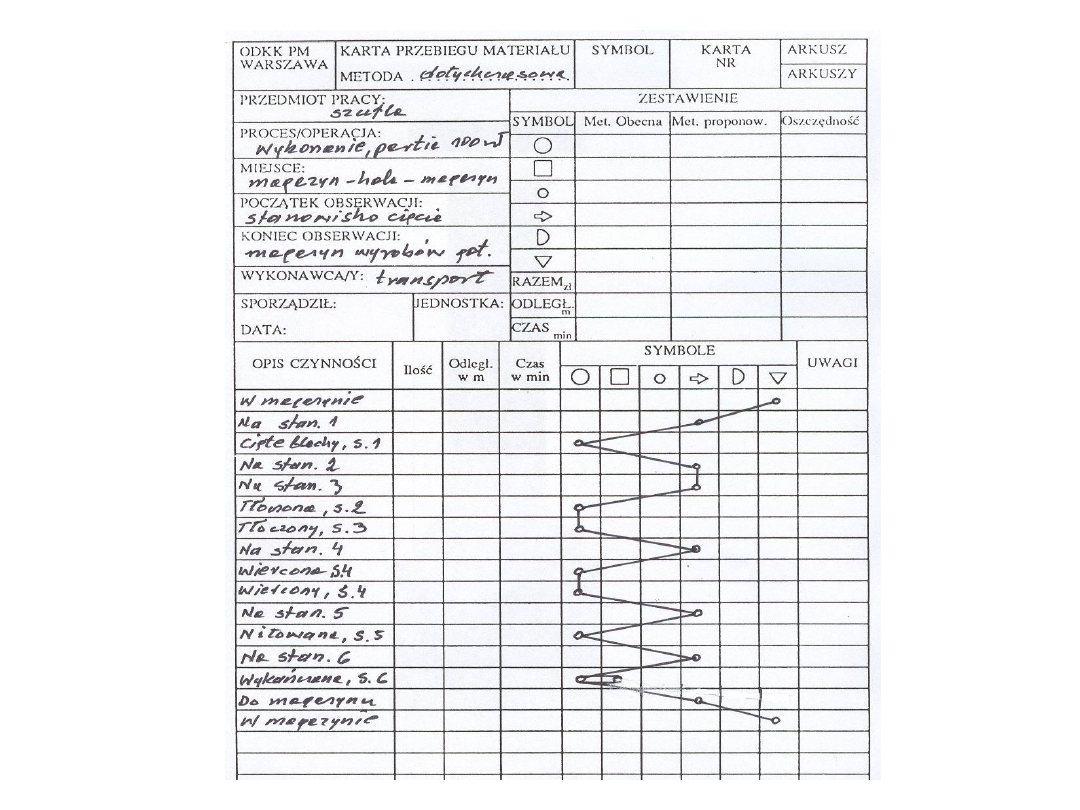 ODKK PM
WARSZAWA
KARTA PRZEBIEGU MATERIAŁU
METODA . dotychczasowa.
SYMBOL
KARTA
NR
ARKUSZ
ARKUSZY
PRZEDMIOT PRACY:
szufla
PROCES/OPERACJA:
Wykonanie, partia 100
MIEJSCE:
magazyn - hala - magazyn
POCZĄTEK OBSERWACJI:
stanowisko cięcia
KONIEC OBSERWACJI:
magazyn wyrobów got.
WYKONAWCA/Y: transport
SPORZĄDZIŁ:
DATA:
JEDNOSTKA:
ZESTAWIENIE
SYMBOL Met. Obecna Met. proponow. Oszczędność
RAZEM zł
ODLEGŁ. m
CZAS min
OPIS CZYNNOŚCI
Ilość
Odległ.
w m
Czas
w min
SYMBOLE
UWAGI
W magazynie
Na stan. 1
Cięte blachy, s.1
Na stan. 2
Na stan. 3
Tłoczona, s.2
Tłoczony, s.3
Na stan. 4
Wiercona s.4
Wiercony, s.4
Na stan. 5
Nitowana, s.5
Na stan. 6
Wykańczana, s.6
Do magazynu
W magazynie